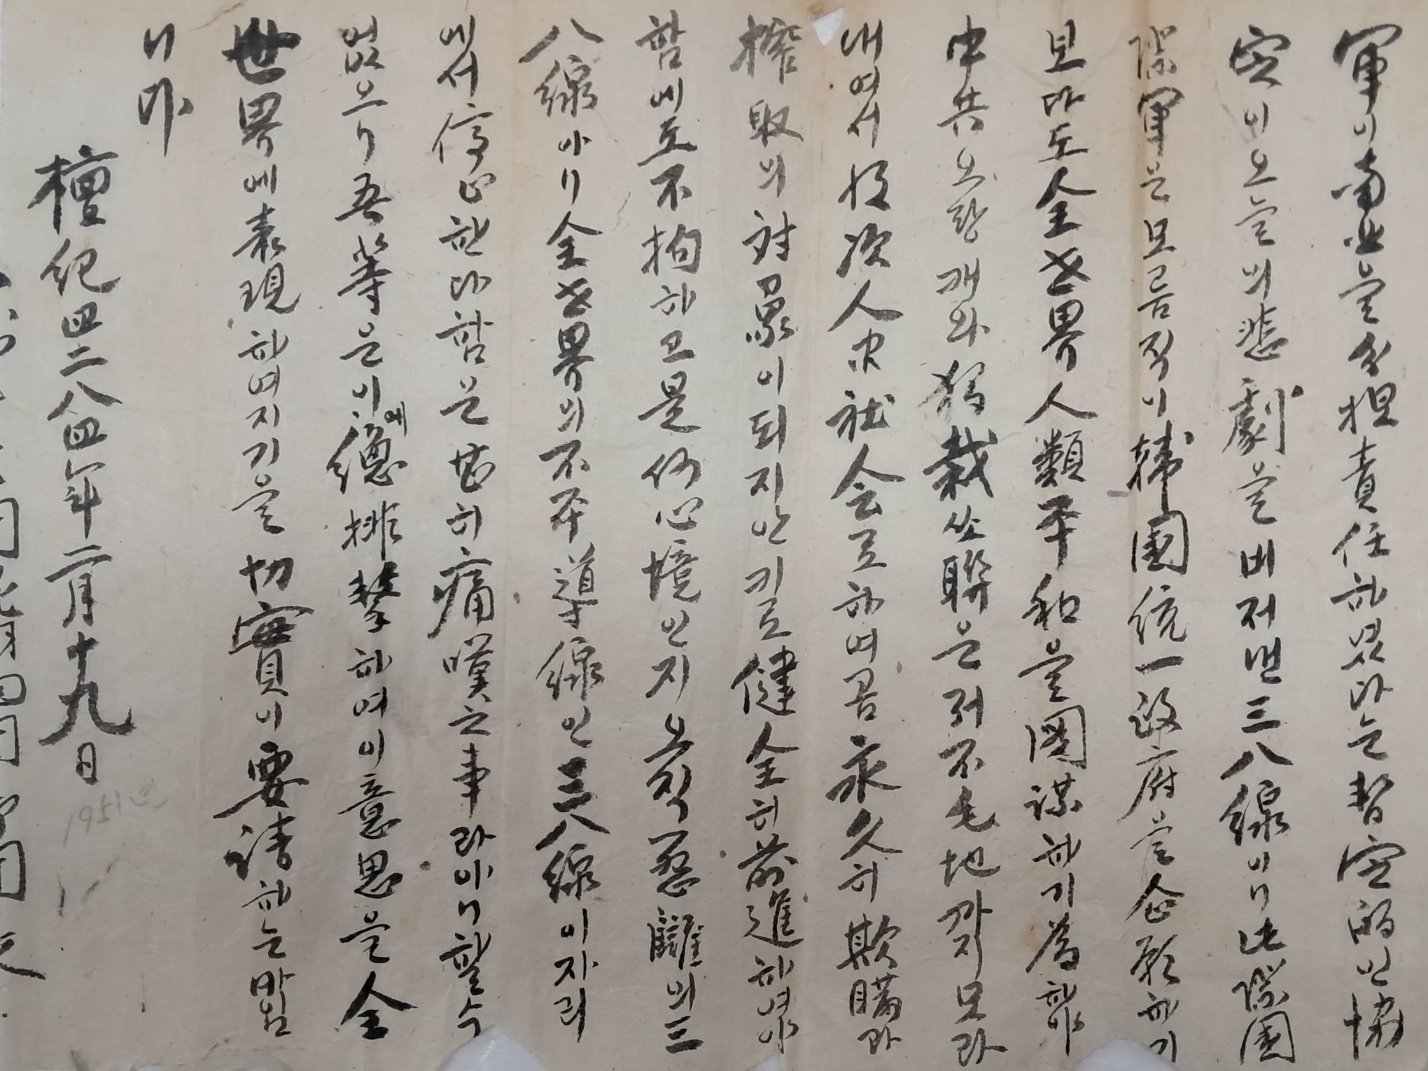 軍이南北을分担責任하였다는暫定的인協
定이오늘의悲劇을비저낸三八線이니此際國
際軍은모름직이韓國統一政府을企願하기
보다도全世界人類平和을圖謀하기為하야
中共오랑캐와獨裁쏘聯은저不毛地까지모라
내여서投降人民社会로하여곰永久히欺瞞과
搾取의対象이되지안키로健全히前進하여야
함에도不拘하고是何心境인지오직怨讐의三
八線아니全世界의不平導線인三八線이자리
에서停止한다함은甘히痛嘆之事라아니할수
없으니吾等은이에總排擊하여이意思을全
世界에表現하여지기을切實이要請하는바임
니다
檀紀四二八四年二月十九日
1951년